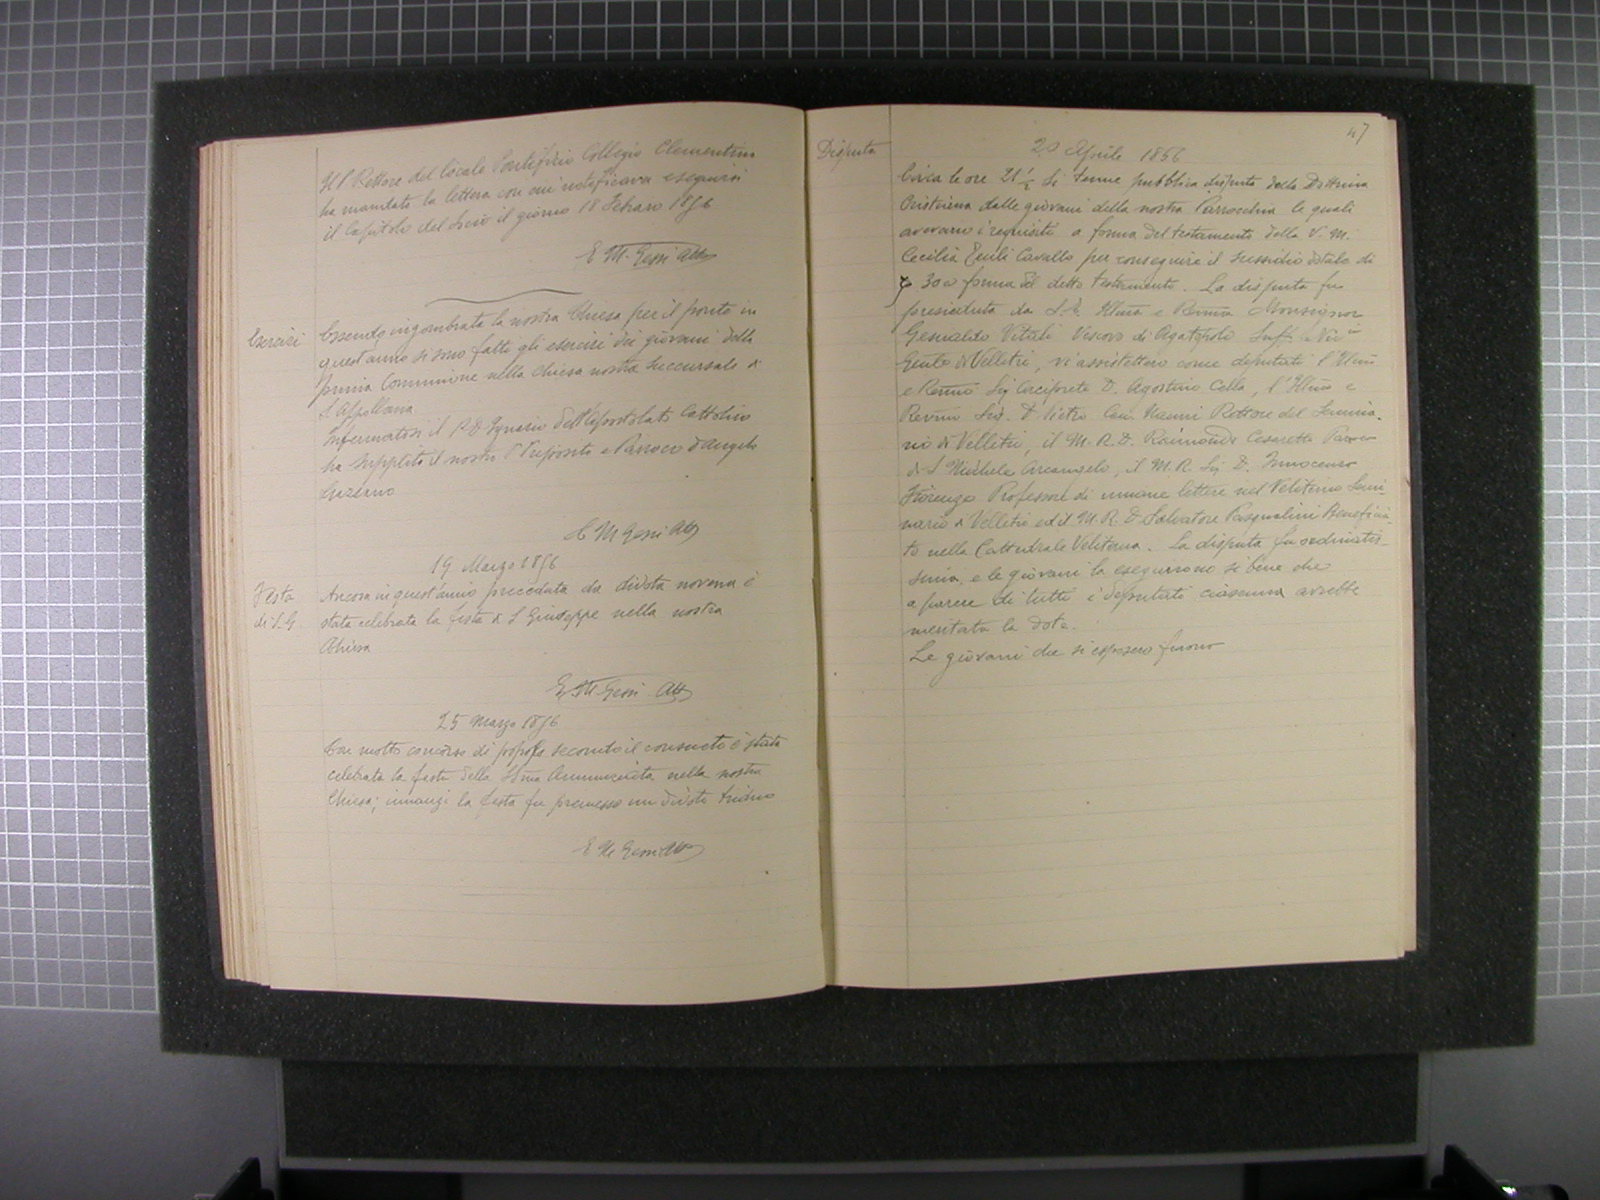 Il P Rettore del locale Pontificio Collegio Clementino
ha mandato la lettera con cui notificava eseguirsi
il Capitolo del Socio il giorno 18 Febraro 1856
E M. Gessi Att
Esercizi
Essendo ingombrata la nostra Chiesa per il ponte in
quest'anno si sono fatti gli esercizi dei giovani della
prima Communione nella chiesa nostra succursale di
S. Apollonia
Infermatosi il P. D. Ignazio dell'Apostolato Cattolico
ha supplito il nostro P Preposito e Parroco d'Angelo
E M Gessi Att
19 Marzo 1856
Festa
di S. G.
Ancora in quest'anno preceduta da divota novena è
stata celebrata la festa di S Giuseppe nella nostra
Chiesa
E M Gessi Att
25 Marzo 1856
Con molto concorso di popolo secondo il consueto è stata
celebrata la festa della SSma Annunciata nella nostra
Chiesa; innanzi la festa fu premesso un divoto triduo
E M Gessi Att
47
Disputa
20 Aprile 1856
Circa le ore 21 1/2 si tenne pubblica disputa della Dottrina
Cristiana dalle giovani della nostra Parrocchia le quali
avevano i requisiti a forma del testamento della V. M.
Cecilia Cavallo per conseguire il sussidio dotale di
30 a forma del detto testamento. La disputa fu
presieduta da S. E. Illma e Rma Monsignor
Gesualdo Vitali Vescovo di Agatopoli Suff. e Vi
gente di Velletri, vi assistettero come deputati l'Illmo
e Revmo Sig Arciprete D. Agostino Cella, l'Illmo e
Revmo Sig. D. Pietro Can. Nanni Rettore del Semina-
rio di Velletri, il M. R. D. Raimondo Cesaretti Parroco
di S Michele Arcangelo, il M. R. Sig D. Innocenzo
Fiorenza Professore di umane lettere nel Veliterno Semi-
nario di Velletri ed il M. R. D Salvatore Pasqualini Beneficia-
to nella Cattedrale Veliterna. La disputa fu ordinatis-
sima, e le giovani la eseguirono sì bene che
a parere di tutti i deputati ciascuna avrebbe
meritata la dote.
Le giovani che si esposero furono